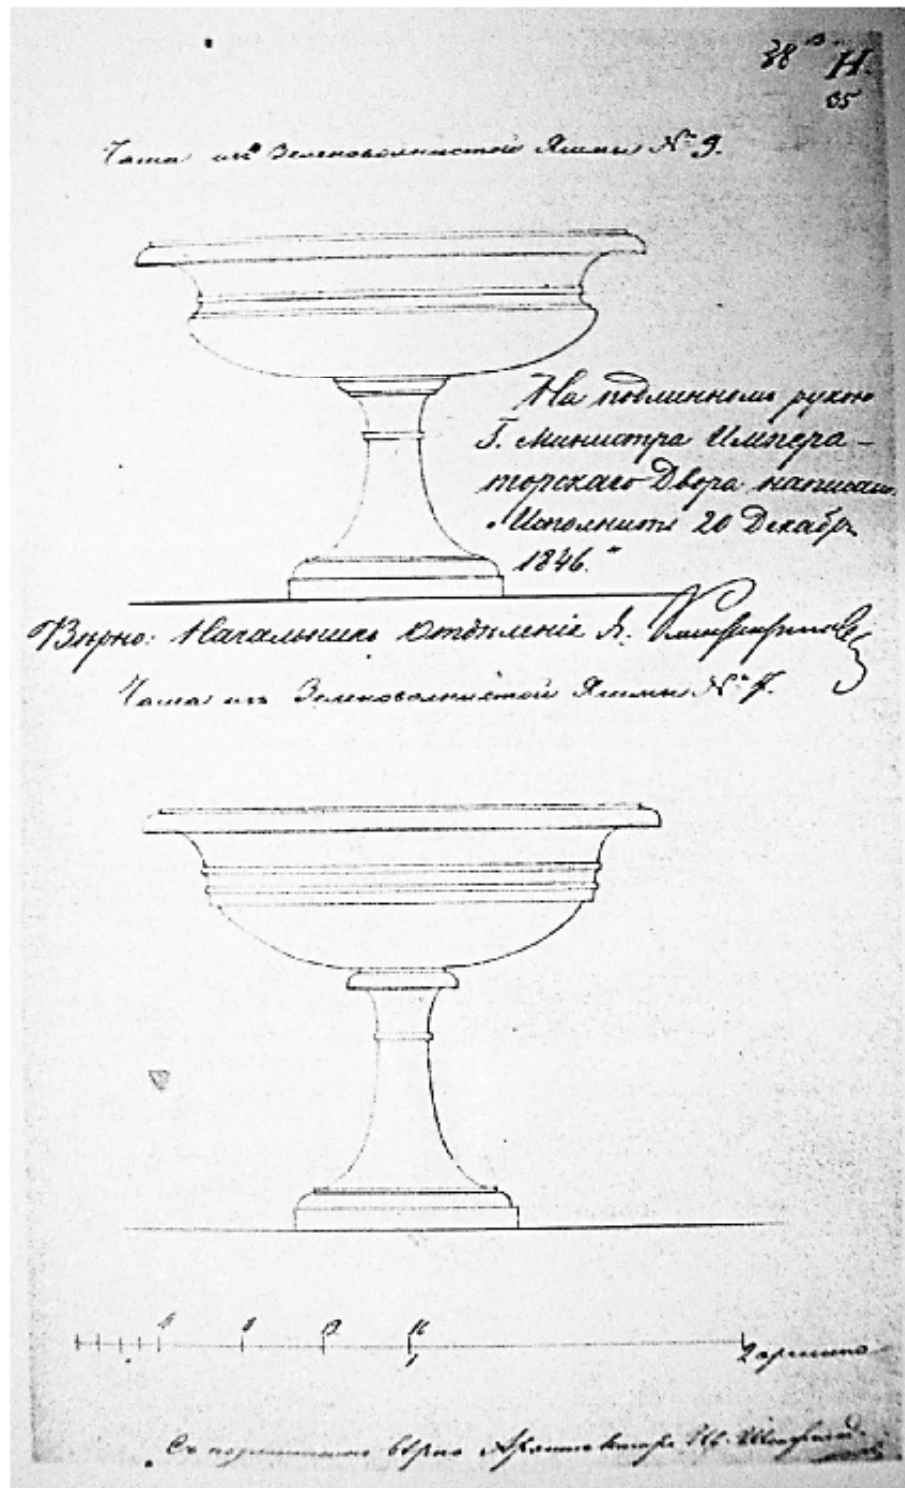 38 Н.
35
Чаша изъ Зеленоволнистой Яшмы № 9.
На подлинномъ рукою
Г. Министра Импера-
торскаго Двора написано:
„Исполнить 20 Декабря
1846."
Вѣрно: Начальникъ Отдѣленія
Чаша изъ Зеленоволнистой Яшмы № 7.
4 8 12 16
1 2 аршина
Съ подлиннымъ вѣрно Архитекторъ